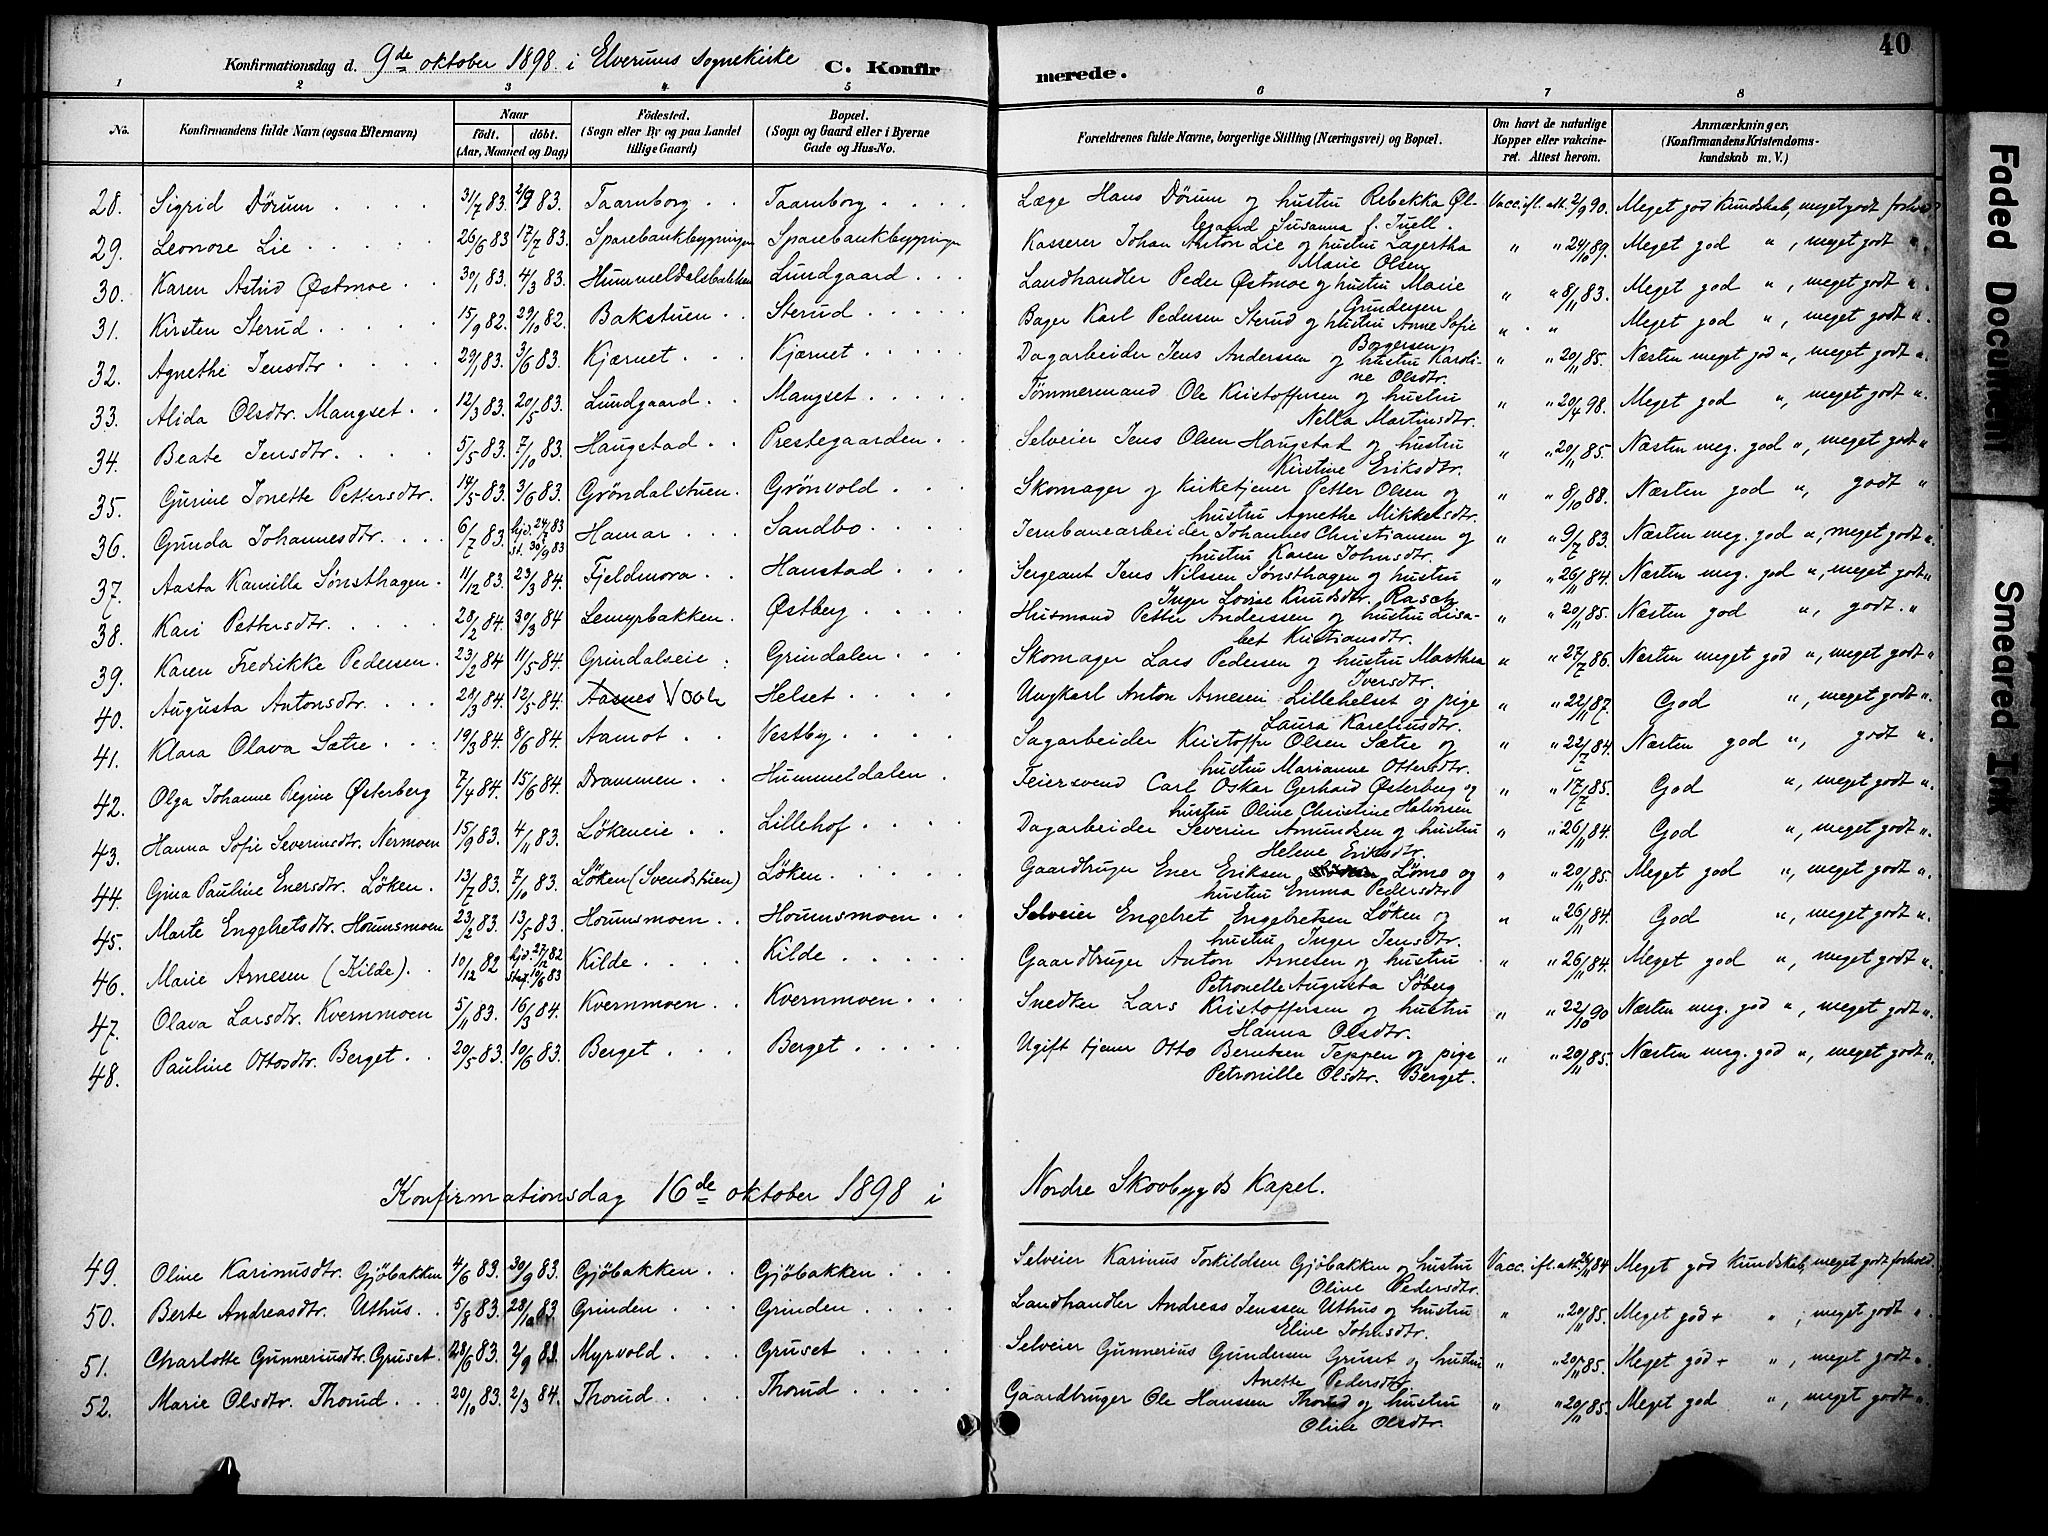 40
Konfirmationsdag d. 9de oktober 1898 i Elverums Sognekirke C. Konfirmerede.
1 2 3 4 5 6 7 8
No. Konfirmandens fulde Navn (ogsaa Efternavn) Naar født. døbt. (Aar, Maaned og Dag) Fødested. (Sogn eller By og paa Landet tillige Gaard) Bopæl. (Sogn og Gaard eller i Byerne Gade og Hus-No. Forældrenes fulde Navne, borgerlige Stilling (Næringsvei) og Bopæl. Om havt de naturlige Kopper eller vakcineret. Attest herom. Anmærkninger. (Konfirmandens Kristendomskundskab m. V.)
28. Sigrid Dørum 31/7 83. 2/9 83. Taarnborg Taarnborg Læge Hans Dørum og hustru Rebekka Ølegaard Susanna f. Juell. Vacc. ifl. att. 2/9 90. Meget god kundskab, meget godt forhold
29. Leonore Lie 26/6 83 17/7 83. Sparebankbygningen Sparebankbygningen Kasserer Johan Anton Lie og hustru Lagertha Marie Olsen " " 24/10 89. Meget god ", meget godt ".
30. Karen Astrid Østmoe 30/1 83. 4/3 83. Hummeldalsbakken Lundgaard Landhandler Peder Østmoe og hustru Marie Gundersen " " 8/11 83. Meget god ", meget godt ".
31. Kirsten Sterud 15/9 82. 29/10 82. Bakstuen Sterud Bager Karl Pedersen Sterud og hustru Anne Sofie Borgersen " " Meget god ", meget godt ".
32. Agnethe Jensdtr. 29/1 83. 3/6 83. Kjærnet Kjærnet Dagarbeider Jens Anderssen og hustru Karoline Olsdtr. " " 20/11 85. Næsten meget god ", meget godt ".
33. Alida Olsdtr. Mangset 12/3 83. 20/5 83. Lundgaard Mangset Tømmermand Ole Kristoffersen og hustru Nella Martinsdtr. " " 20/4 98. Meget god ", meget godt ".
34. Beate Jensdtr. 5/5 83. 7/10 83. Haugstad Prestegaarden Selveier Jens Olsen Haugstad og hustru Kirstine Eriksdtr. " " 20/11 85. Næsten meg. god ", meget godt "
35. Gurine Jonette Pettersdtr. 14/5 83. 3/6 83. Grøndalstuen. Grønvold Skomager og kirketjener Petter Olsen og hustru Agnethe Mikkelsdtr. " " 8/10 88. Næsten god ", godt "
36. Gunda Johannesdtr. 6/7 83. hjd. 24/7 83 st. 30/9 83 Hamar Sandbo Jernbanearbeider Johannes Christiansen og hustru Karen Johnsdtr. " " 9/7 83. Næsten meg. god ", meget godt ".
37. Aasta Kamilla Sønsthagen 11/12 83. 23/3 84. Fjeldmora Hanstad Sergeant Jens Nilssen Sønsthagen og hustru Inger Lovise Knudsdtr. Rasch " " 26/11 84. Næsten meg. god ", meget godt "
38. Kari Pettersdtr. 28/2 84. 30/3 84 Lemyrbakken Østberg Husmand Petter Anderssen og hustru Lisabet Kristiansdtr. " " 20/11 85. Næsten god ", godt. "
39. Karen Fredrikke Pedersen 23/2 84 11/5 84. Grindalseie Grindalen Skomager Lars Pedersen og hustru Marthea Iversdtr. " " 27/7 86. Næsten meget god ", meget godt ".
40. Augusta Antonsdtr. 28/3 84. 12/5 84. Aasnes Helset Ungkarl Anton Arnesen Lillehelset og pige Laura Kareliusdtr. " " 22/11 87. God ", meget godt ".
41. Klara Olava Sætre 19/3 84. 8/6 84. Aamot Vestby Sagarbeider Kristoffer Olsen Sætre og hustru Marianne Ottersdtr. " " 22/7 84. Næsten god ", godt ".
42. Olga Johanne Regine Østerberg 7/4 84. 15/6 84. Drammen Hummeldalen Feiersvend Carl Oskar Gerhard Østerberg og hustru Oline Christine Halvorsen " " 17/7 85. God ", meget godt ".
43. Hanna Sofie Severinsdtr. Nermoen 15/9 83. 4/11 83. Løkeneie Lillehof Dagarbeider Severin Amundsen og hustru Helene Eriksdtr. " " 26/11 84. God ", meget godt ".
44. Gina Pauline Enersdtr. Løken 13/7 83. 7/10 83. Løken (Svendstuen) Løken Gaardbruger Ener Eriksen Lømo og hustru Emma Pedersdtr. " " 20/11 85. Meget god ", meget godt ".
45. Marte Engebretsdtr. Hornmsmoen 23/2 83. 13/5 83. Hornmsmoen Hornmsmoen Selveier Engebret Engebretsen Løken og hustru Inger Jensdtr. " " 26/11 84. God ", meget godt ".
46. Marie Arnesen (Kilde). 10/12 82 hjd. 27/12 82 stad. 10/6 83 Kilde Kilde Gaardbruger Anton Arnesen og hustru Petronelle Augusta Søberg " " 26/11 84. Meget god ", meget godt ".
47. Olava Larsdtr. Kvernmoen 5/11 83. 16/3 84. Kvernmoen Kvernmoen Snedker Lars Kristoffersen og hustru Hanna Olsdtr. " " 22/10 90 Næsten meg. god ", meget godt ".
48. Pauline Ottosdtr. Berget 20/5 83. 10/6 83. Berget Berget Ugift tjener Otto Berntsen Teppen og pige Petronille Olsdtr. Berget. " " 20/11 85. Næsten meg. god ", meget godt ".
Konfirmationsdag 16de oktober 1898 i Nordre Skovbygds Kapel.
49. Oline Karinusdtr. Gjøbakken 4/6 83. 30/9 83. Gjøbakken Gjøbakken Selveier Karinus Torkildsen Gjøbakken og hustru Oline Pedersdtr. Vacc. ifl. att. 26/11 84 Meget god kundskab, meget godt forhold.
50. Berte Andreasdtr. Uthus 5/8 83. 28/10 83 Grinden Grinden Landhandler Andreas Jenssen Uthus og hustru Eline Johnsdtr. " " 20/11 85. Meget god + ", meget godt ".
51. Charlotte Gunneriusdtr. Gruset 28/6 83. 2/9 83. Myrvold Gruset Selveier Gunnerius Gundersen Gruset og hustru Anette Pedersdtr " " 20/11 85. Meget god + ", meget godt ".
52. Marie Olsdtr. Thorud 20/10 83. 2/3 84. Thorud Thorud Gaardbruger Ole Hanssen Thorud og hustru Oline Olsdtr. " " 20/11 85. Meget god ", meget godt ".
Faded Document
Smeared Ink